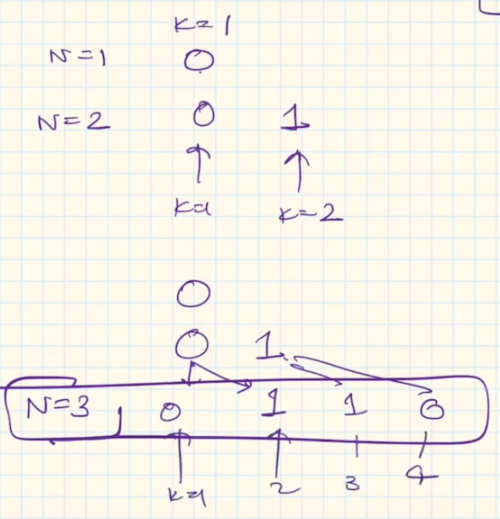 K=1
N=1 0
N=2 0 1
K=1 K=2
0
0 1
N=3 0 1 1 0
K=1 2 3 4